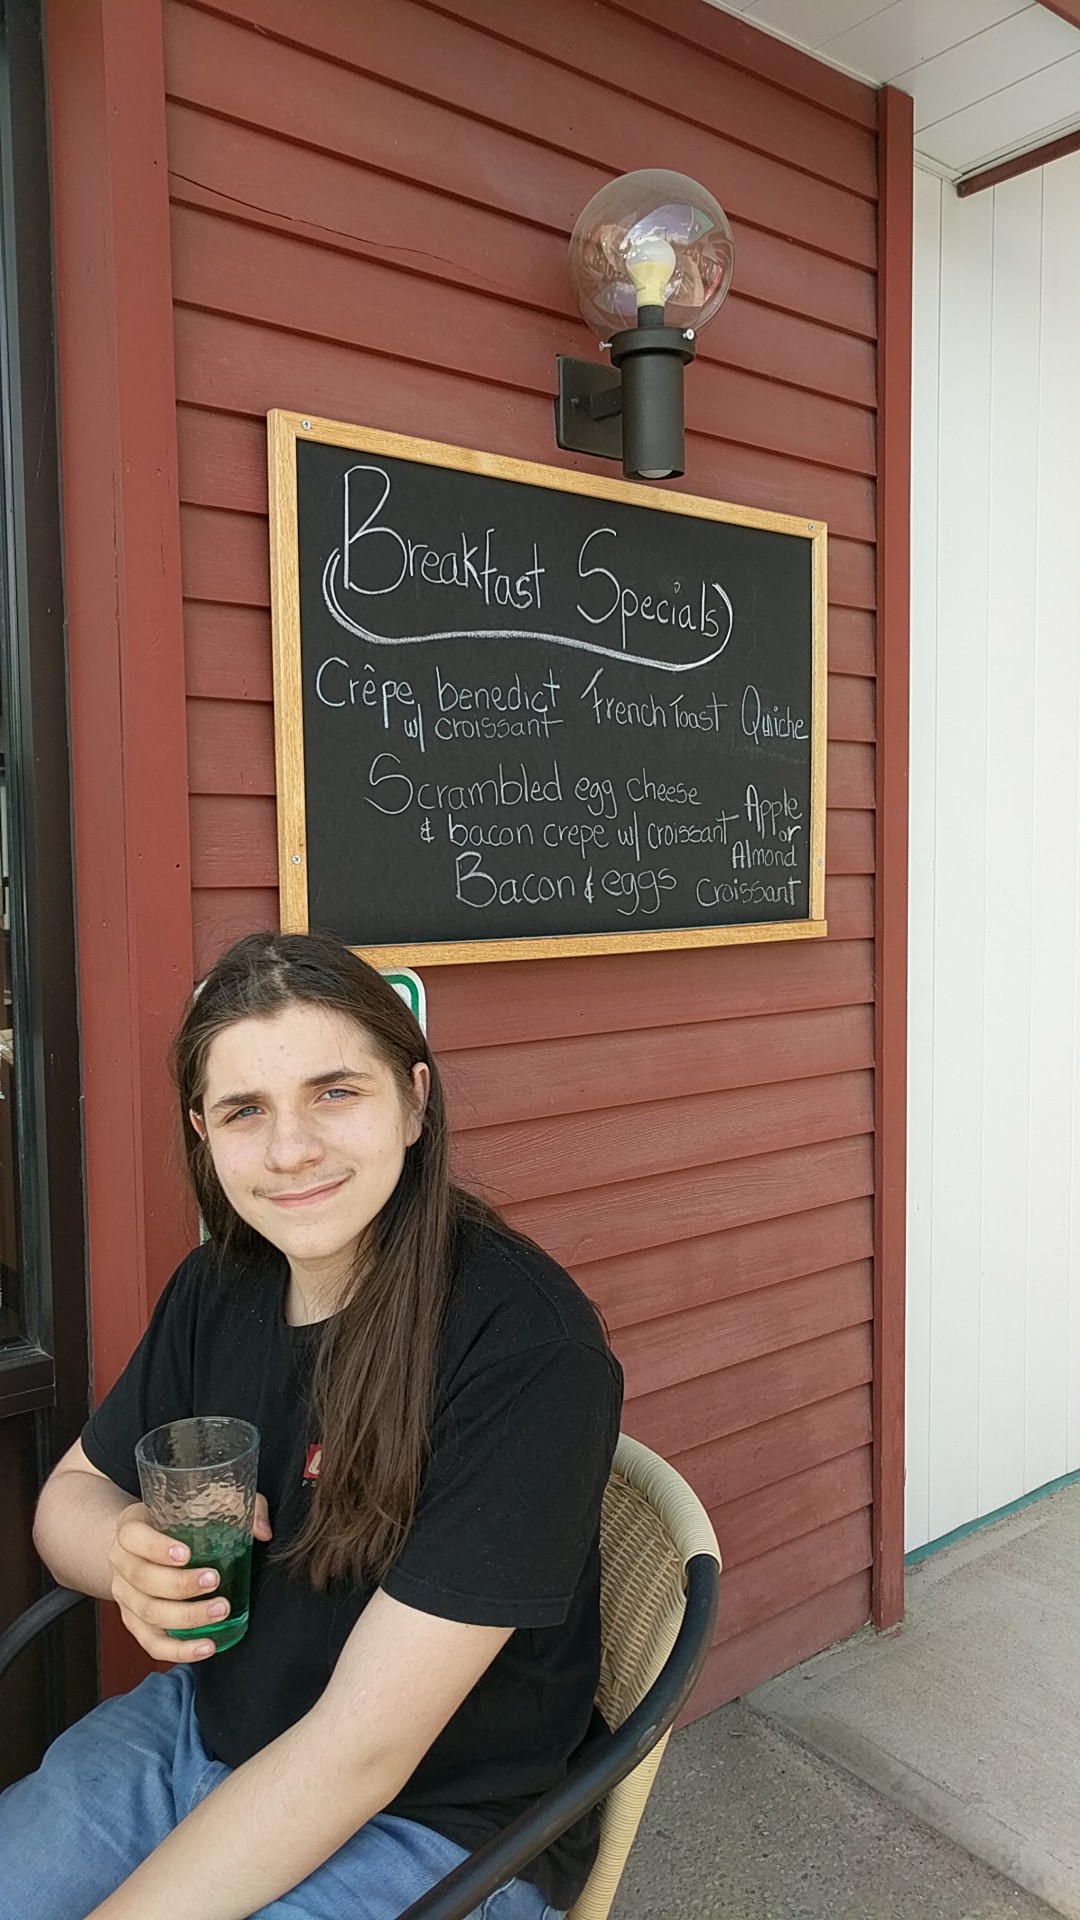 Breakfast Specials
Crêpe benedict French Toast Quiche
w/ croissant
Scrambled egg cheese
& bacon crepe w/ croissant
Bacon & eggs
Apple
or
Almond
Croissant